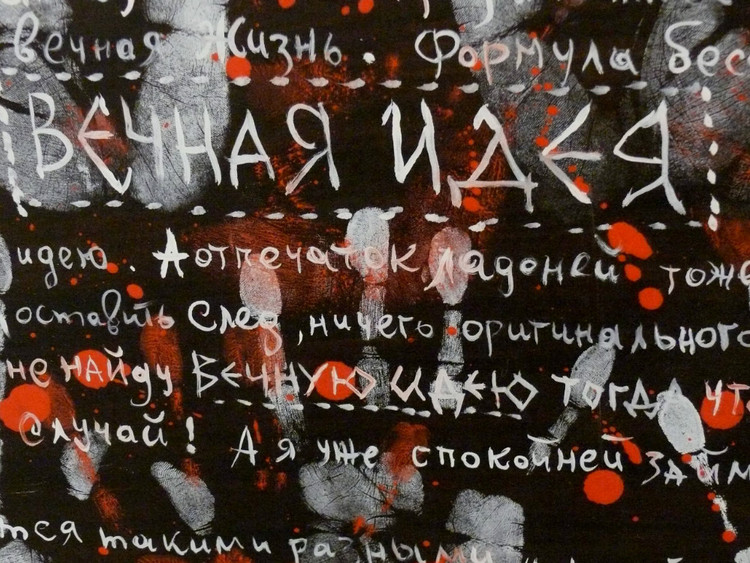 вечная жизнь. Формула бес
ВЕЧНАЯ ИДЕЯ
идею. А отпечаток ладоней тоже
оставить След, ничего оригинального
не найду Вечную идею тогда что
Случай! А я уже спокойней займ
тся такими разными